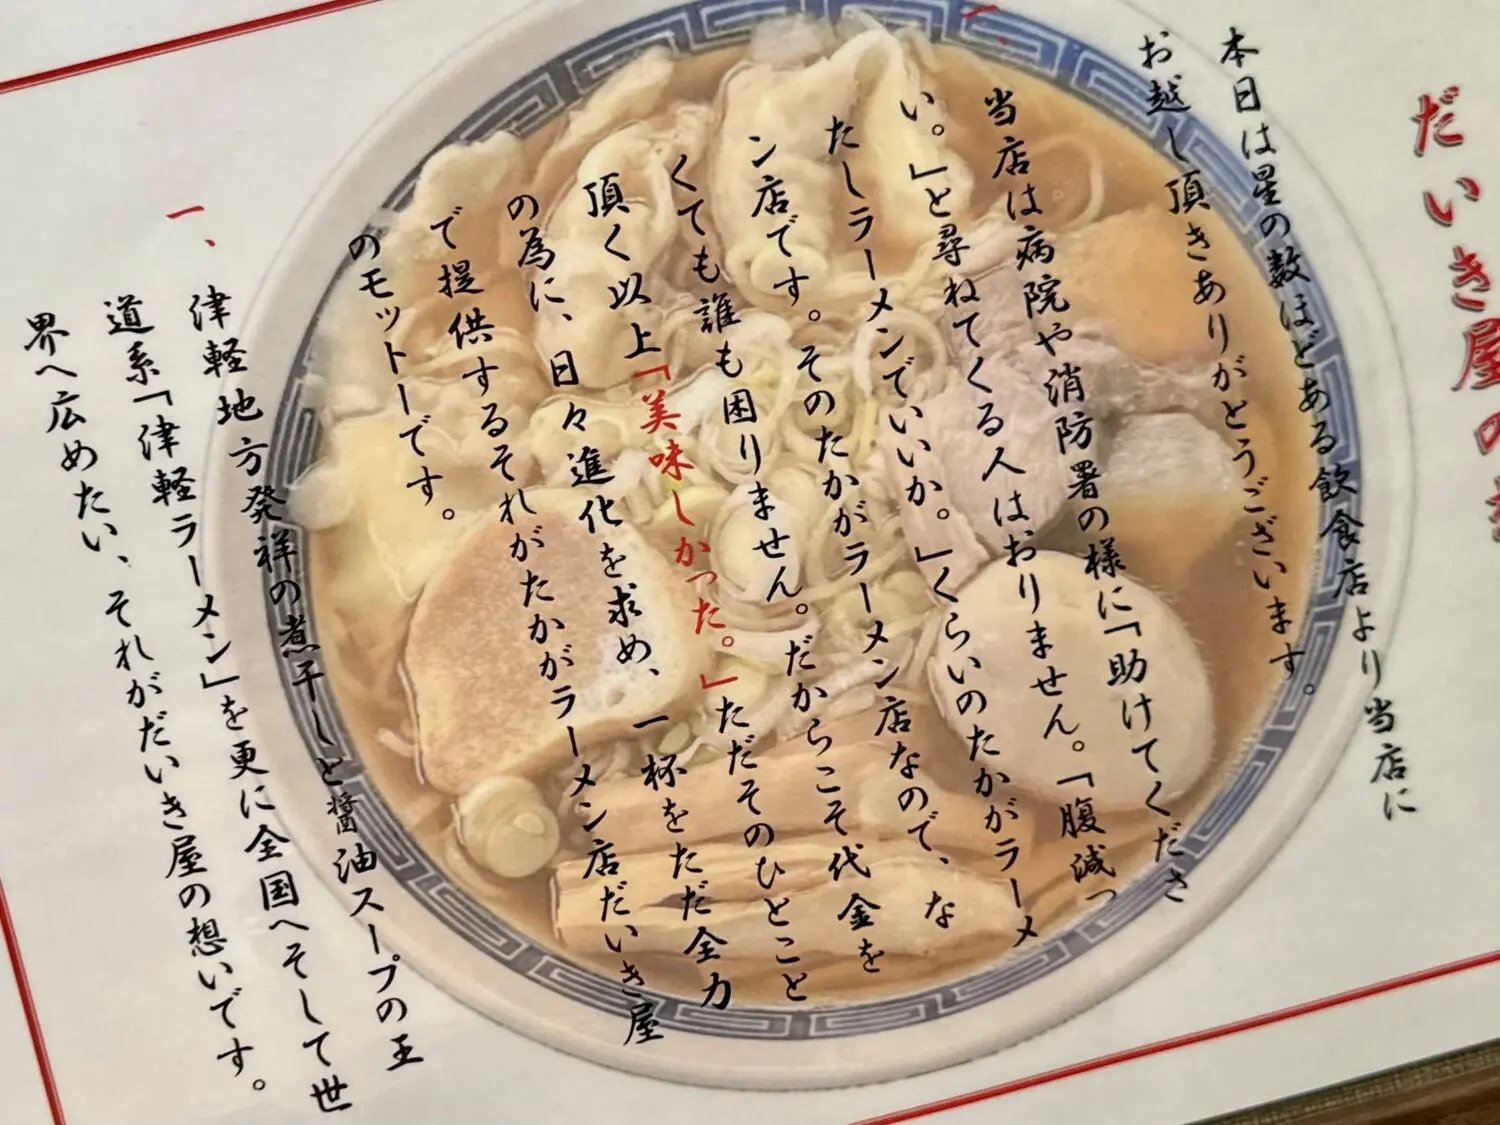 だいき屋の
本日は星の数ほどある飲食店より当店に
お越し頂きありがとうございます。
一、
当店は病院や消防署の様に「助けてくださ
い。」と尋ねてくる人はおりません。「腹減っ
たしラーメンでいいか。」くらいのたかがラーメ
ン店です。そのたかがラーメン店なので、な
くても誰も困りません。だからこそ代金を
頂く以上「美味しかった。」ただそのひとこと
の為に、日々進化を求め、一杯をただ全力
で提供するそれがたかがラーメン店だいき屋
のモットーです。
一、
津軽地方発祥の煮干しと醤油スープの王
道系「津軽ラーメン」を更に全国へそして世
界へ広めたい、それがだいき屋の想いです。